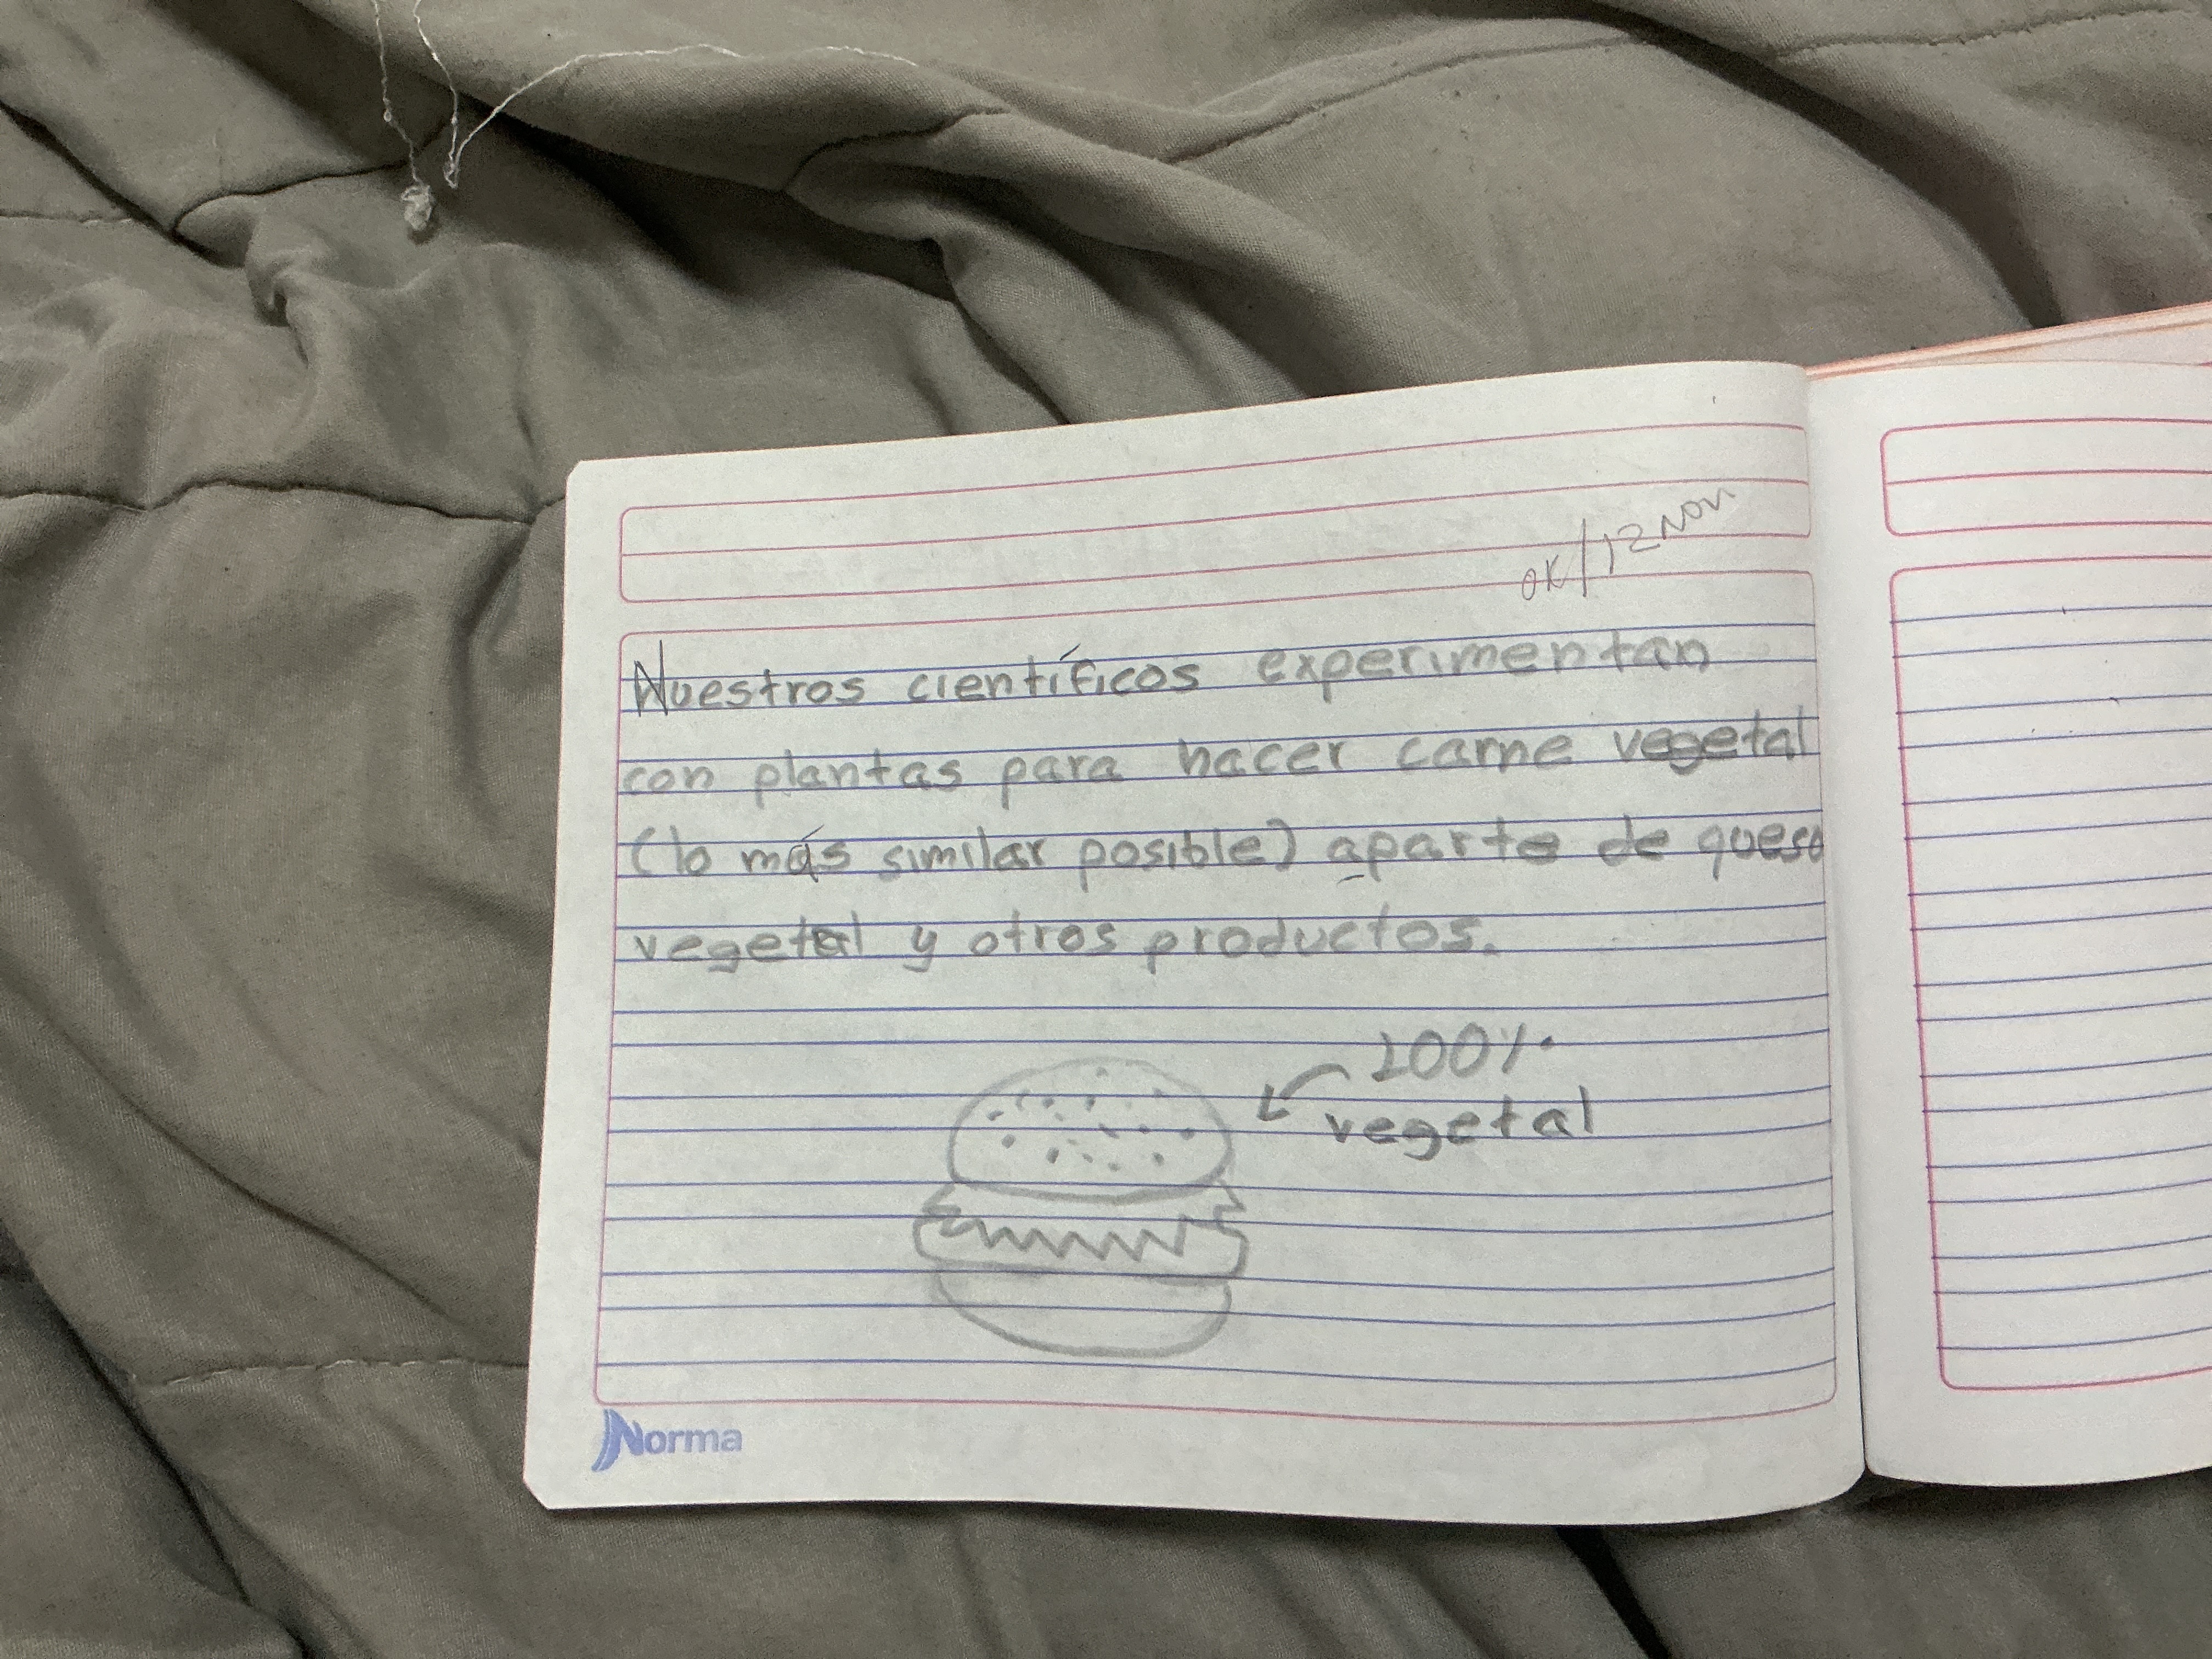 OK/12 Nov
Nuestros científicos experimentan
con plantas para hacer carne vegetal
(lo más similar posible) aparte de queso
vegetal y otros productos.
100%
vegetal
Norma